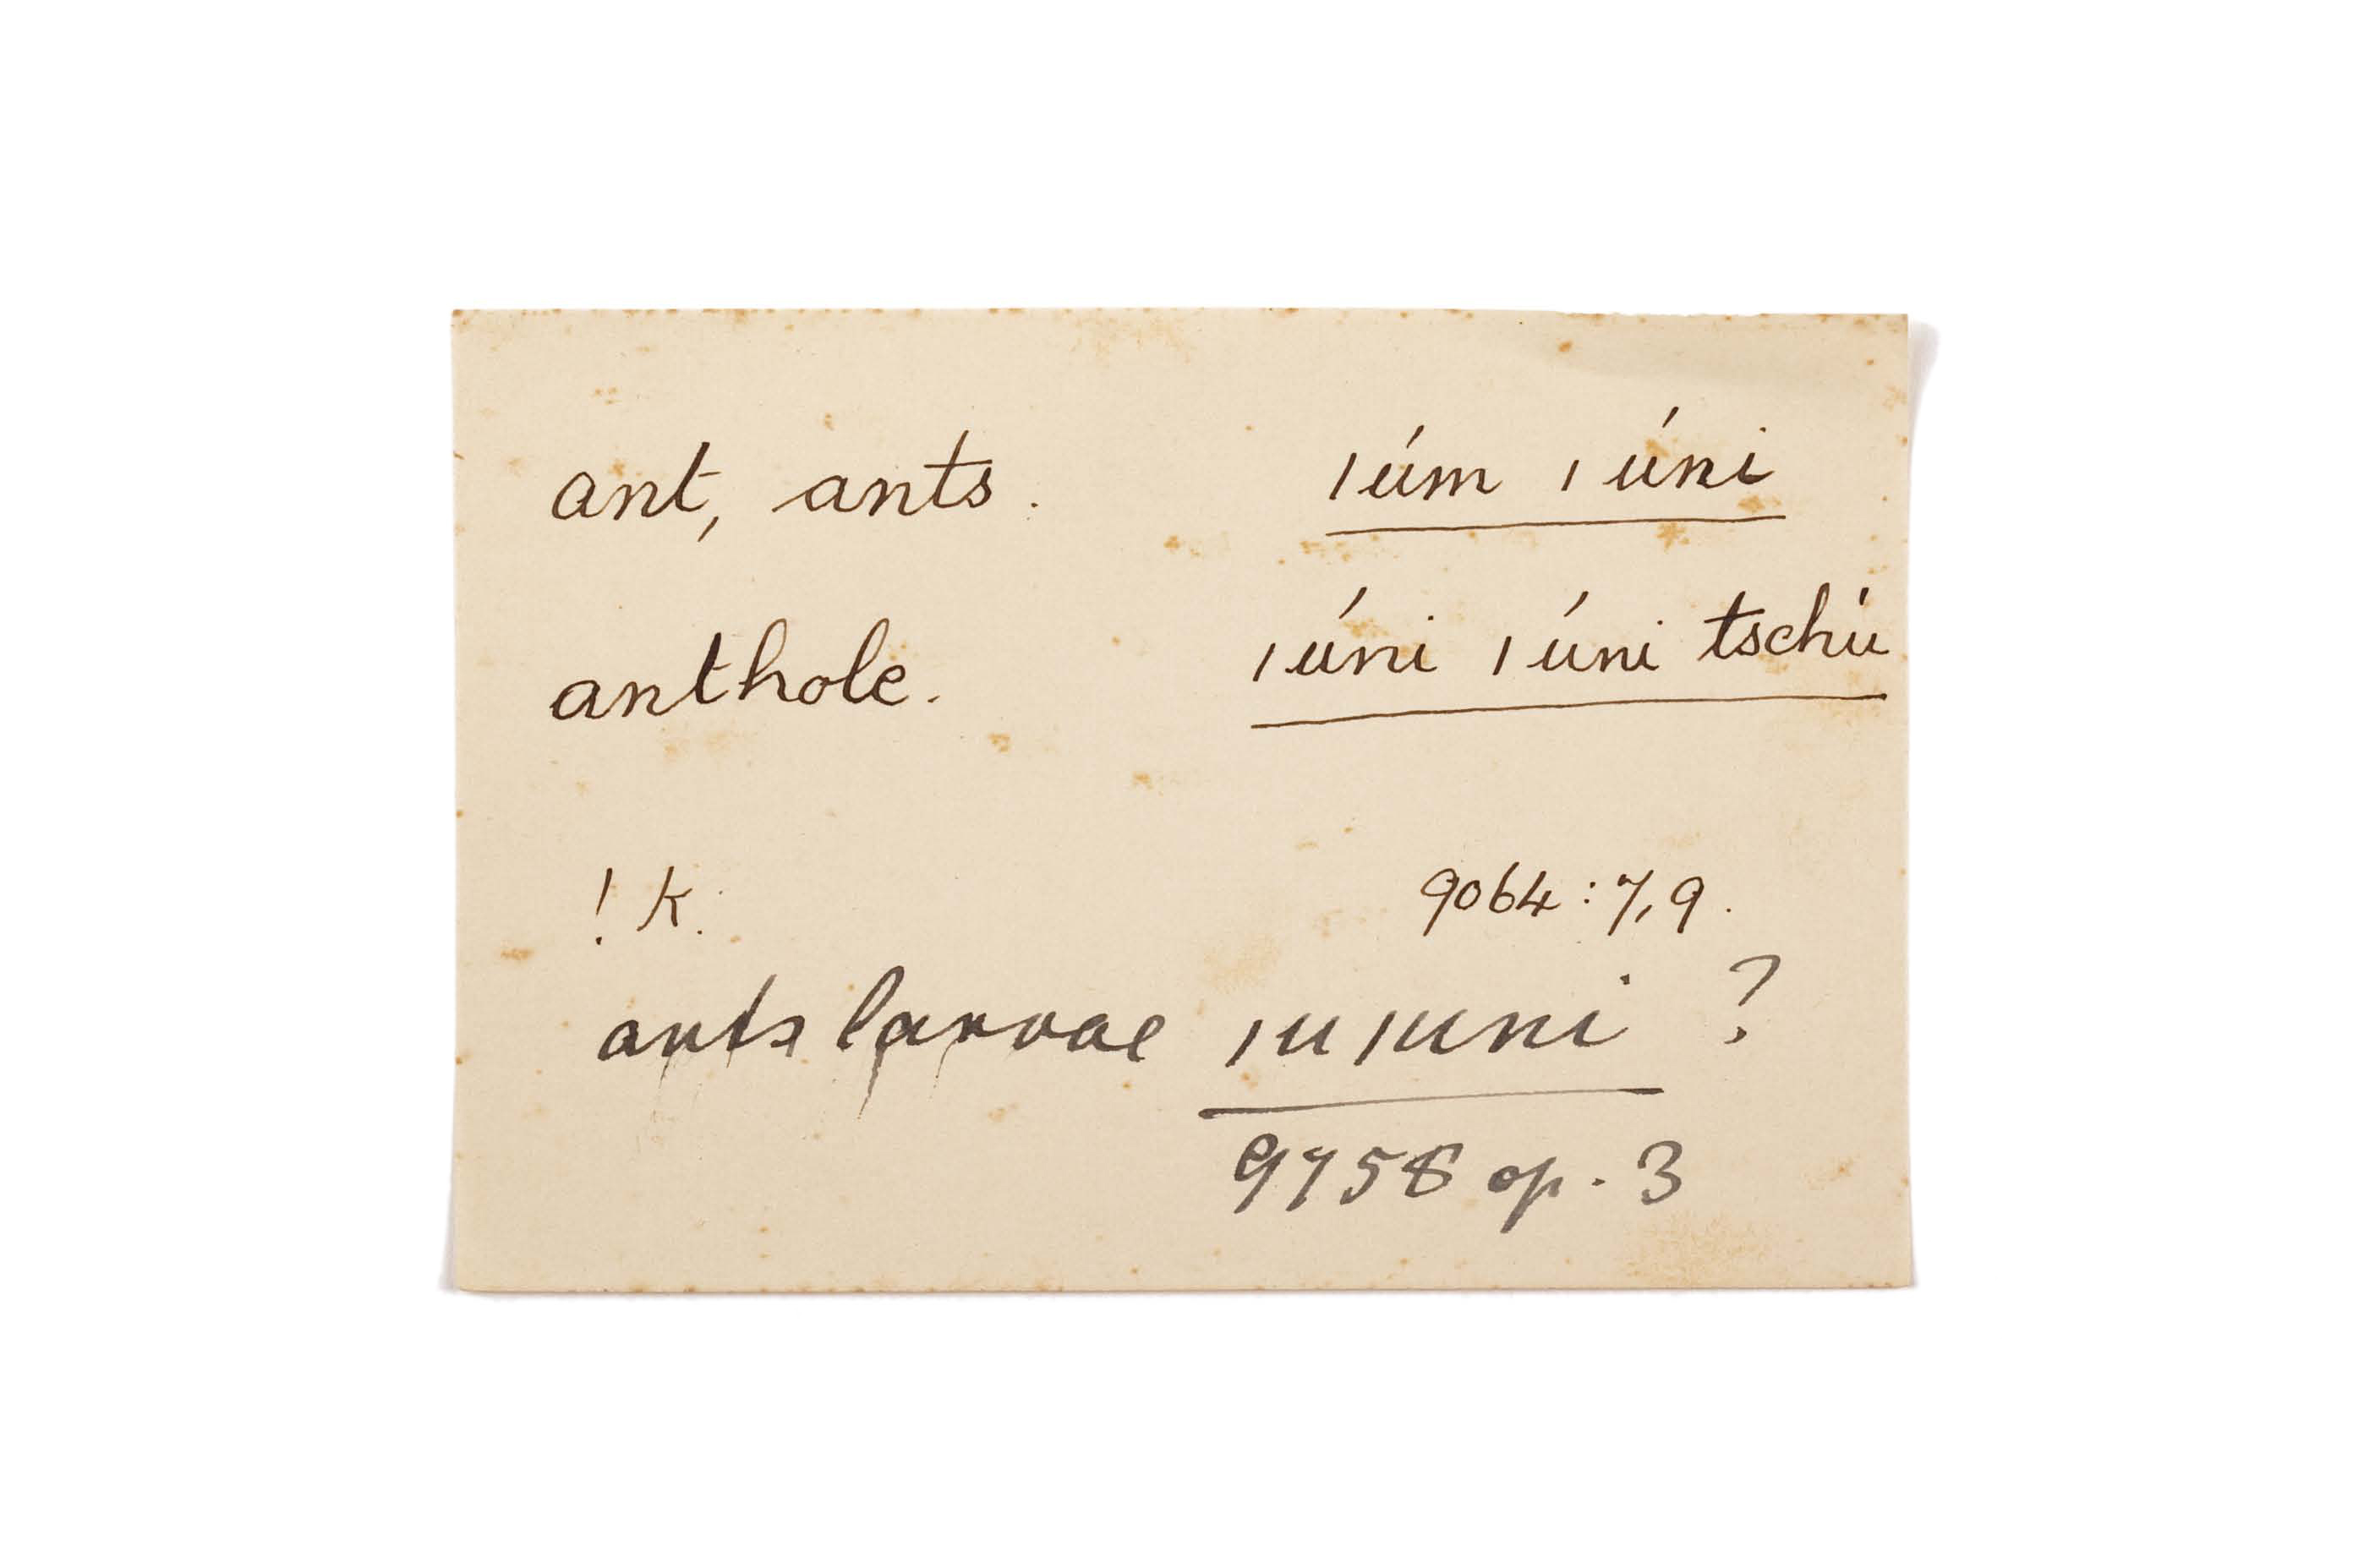 ant, ants. ǀúm ǀúni
anthole. ǀúni ǀúni tschú
! k. 9064:7,9.
ants larvae ǀuǀuni ?
9758 op. 3